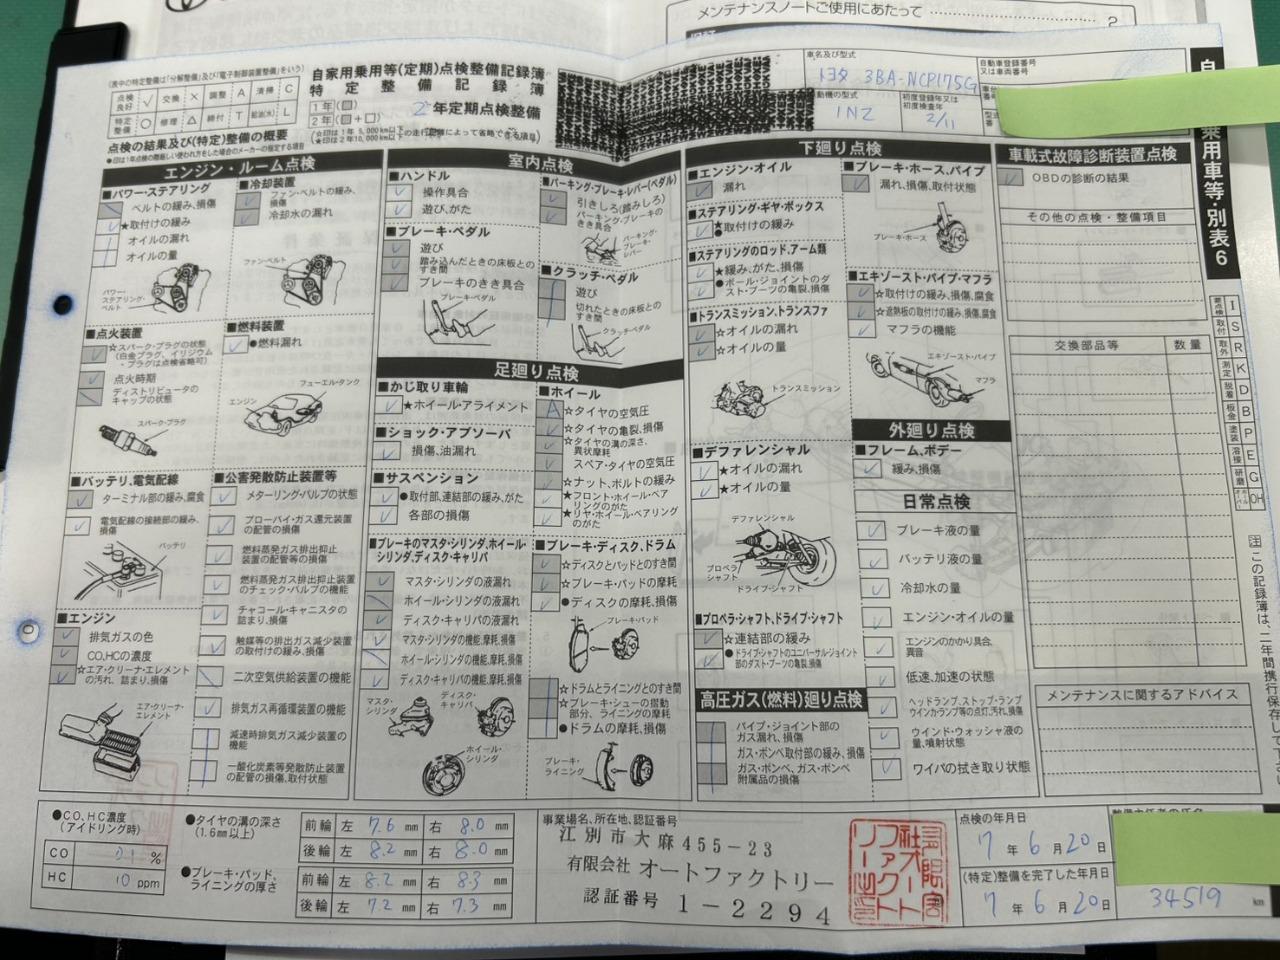 メンテナンスノートご使用にあたって 2
(表中の特定整備は「分解整備」及び「電子制御装置整備」をいう)
点検良好 ✓ 交換 × 調整 A 清掃 C
特定整備 ○ 修理 △ 締付 T 給油(水) L
自家用乗用等(定期)点検整備記録簿
特定整備記録簿
1年(□)
2年(□+□)
2年定期点検整備
点検の結果及び(特定)整備の概要
車名及び型式
トヨタ 3BA-NCP175G
原動機の型式
1NZ
初度登録年又は初度検査年
2/11
自動車登録番号又は車両番号
乗用車等・別表6
エンジン・ルーム点検
■パワー・ステアリング
ベルトの緩み、損傷
★取付けの緩み
オイルの漏れ
オイルの量
パワー・ステアリング・ベルト
■冷却装置
ファン・ベルトの緩み、損傷
冷却水の漏れ
ファン・ベルト
■点火装置
☆スパーク・プラグの状態
(白金プラグ、イリジウム・プラグは点検省略可)
点火時期
ディストリビュータのキャップの状態
スパーク・プラグ
■燃料装置
●燃料漏れ
フューエル・タンク
エンジン
■バッテリ、電気配線
ターミナル部の緩み、腐食
電気配線の接続部の緩み、損傷
バッテリ
■エンジン
排気ガスの色
CO、HCの濃度
☆エア・クリーナ・エレメントの汚れ、詰まり、損傷
エア・クリーナ・エレメント
■公害発散防止装置等
メターリング・バルブの状態
ブローバイ・ガス還元装置の配管の損傷
燃料蒸発ガス排出抑止装置の配管等の損傷
燃料蒸発ガス排出抑止装置のチェック・バルブの機能
チャコール・キャニスタの詰まり、損傷
触媒等の排出ガス減少装置の取付けの緩み、損傷
二次空気供給装置の機能
排気ガス再循環装置の機能
減速時排気ガス減少装置の機能
一酸化炭素等発散防止装置の配管の損傷、取付状態
室内点検
■ハンドル
操作具合
遊び、がた
■ブレーキ・ペダル
遊び
踏み込んだときの床板とのすき間
ブレーキのきき具合
ブレーキ・ペダル
■パーキング・ブレーキ・レバー(ペダル)
引きしろ(踏みしろ)
パーキング・ブレーキのきき具合
パーキング・ブレーキ・レバー
■クラッチ・ペダル
遊び
切れたときの床板とのすき間
クラッチ・ペダル
足廻り点検
■かじ取り車輪
★ホイール・アライメント
■ショック・アブソーバ
損傷、油漏れ
■サスペンション
●取付部、連結部の緩み、がた
各部の損傷
■ブレーキのマスタ・シリンダ、ホイール・シリンダ、ディスク・キャリパ
マスタ・シリンダの液漏れ
ホイール・シリンダの液漏れ
ディスク・キャリパの液漏れ
マスタ・シリンダの機能、摩耗、損傷
ホイール・シリンダの機能、摩耗、損傷
ディスク・キャリパの機能、摩耗、損傷
マスタ・シリンダ
ディスク・キャリパ
ホイール・シリンダ
■ホイール
A ☆タイヤの空気圧
☆タイヤの亀裂、損傷
☆タイヤの溝の深さ、異状摩耗
スペア・タイヤの空気圧
☆ナット、ボルトの緩み
★フロント・ホイール・ベアリングのがた
★リヤ・ホイール・ベアリングのがた
■ブレーキ・ディスク、ドラム
☆ディスクとパッドとのすき間
☆ブレーキ・パッドの摩耗
●ディスクの摩耗、損傷
ブレーキ・パッド
☆ドラムとライニングとのすき間
☆ブレーキ・シューの摺動部分、ライニングの摩耗
●ドラムの摩耗、損傷
ブレーキ・ライニング
下廻り点検
■エンジン・オイル
漏れ
■ステアリング・ギヤ・ボックス
★取付けの緩み
■ステアリングのロッド、アーム類
★緩み、がた、損傷
●ボール・ジョイントのダスト・ブーツの亀裂、損傷
■トランスミッション、トランスファ
☆オイルの漏れ
☆オイルの量
トランスミッション
■デファレンシャル
★オイルの漏れ
★オイルの量
デファレンシャル
プロペラ・シャフト
ドライブ・シャフト
■プロペラ・シャフト、ドライブ・シャフト
☆連結部の緩み
●ドライブ・シャフトのユニバーサル・ジョイント部のダスト・ブーツの亀裂、損傷
高圧ガス(燃料)廻り点検
パイプ・ジョイント部のガス漏れ、損傷
ガス・ボンベ取付部の緩み、損傷
ガス・ボンベ、ガス・ボンベ附属品の損傷
■ブレーキ・ホース、パイプ
漏れ、損傷、取付状態
ブレーキ・ホース
■エキゾースト・パイプ、マフラ
☆取付けの緩み、損傷、腐食
☆遮熱板の取付けの緩み、損傷、腐食
マフラの機能
エキゾースト・パイプ
マフラ
外廻り点検
■フレーム、ボデー
緩み、損傷
日常点検
ブレーキ液の量
バッテリ液の量
冷却水の量
エンジン・オイルの量
エンジンのかかり具合、異音
低速、加速の状態
ヘッドランプ、ストップ・ランプ、ウインカランプ等の点灯、汚れ、損傷
ウインド・ウォッシャ液の量、噴射状態
ワイパの拭き取り状態
車載式故障診断装置点検
OBDの診断の結果
その他の点検・整備項目
交換部品等 数量
メンテナンスに関するアドバイス
I
取付 S
取外 R
測定 K
脱着 D
板金 B
塗装 P
溶接 E
研磨 G
オーバーホール OH
注 この記録簿は、二年間携行保存して
●CO、HC濃度(アイドリング時)
CO 0.1 %
HC 10 ppm
●タイヤの溝の深さ(1.6mm以上)
前輪 左 7.6 mm 右 8.0 mm
後輪 左 8.2 mm 右 8.0 mm
●ブレーキ・パッド、ライニングの厚さ
前輪 左 8.2 mm 右 8.3 mm
後輪 左 7.2 mm 右 7.3 mm
事業場名、所在地、認証番号
江別市大麻455-23
有限会社 オートファクトリー
認証番号 1-2294
点検の年月日
7年6月20日
(特定)整備を完了した年月日
7年6月20日
34519 km